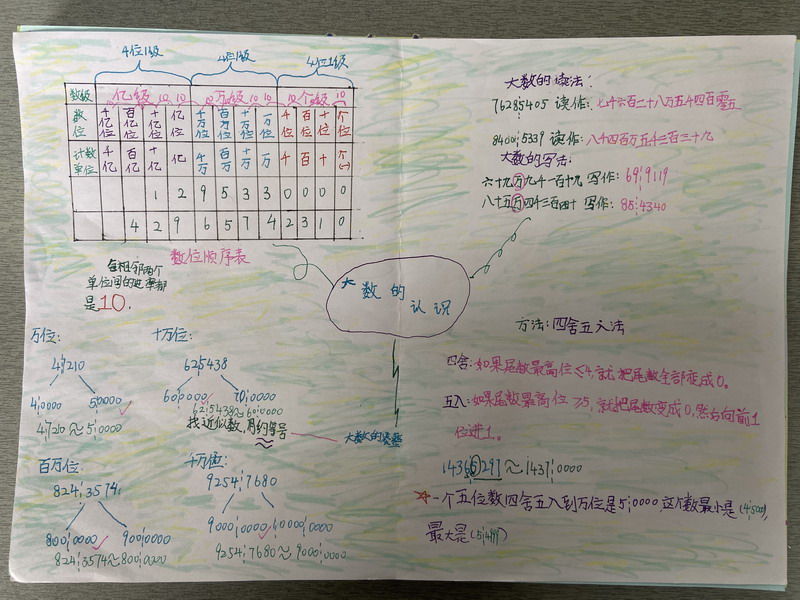 4位1级 4位1级 4位1级
数级 亿级 万级 个级
数位 千亿位 百亿位 十亿位 亿位 千万位 百万位 十万位 万位 千位 百位 十位 个位
计数单位 千亿 百亿 十亿 亿 千万 百万 十万 万 千 百 十 个(一)
1 2 9 5 3 3 0 0 0 0
4 2 9 6 5 7 4 2 3 1 0
数位顺序表
每相邻两个
单位间的进率都
是10.
大数的认识
大数的读法:
76285405 读作: 七千六百二十八万五千四百零五
8400 5339 读作: 八千四百万五千三百三十九
大数的写法:
六十九万九千一百十九 写作: 69 9119
八十五万四千三百四十 写作: 85 4340
万位:
4 0000 5 0000
十万位:
625438
60 0000 70 0000
62 5438≈60 0000
找近似数,用约等号
百万位:
824 3574
800 0000 900 0000
824 3574≈800 0000
千万位:
9254 7680
9000 0000 10000 0000
9254 7680≈9000 0000
方法: 四舍五入法
四舍: 如果尾数最高位≤4,就把尾数全部变成0。
五入: 如果尾数最高位≥5,就把尾数变成0,然后向前1
位进1。
1436 5297≈1437 0000
☆一个五位数四舍五入到万位是5 0000 这个数最小是(4 5000),
最大是(5 4999)